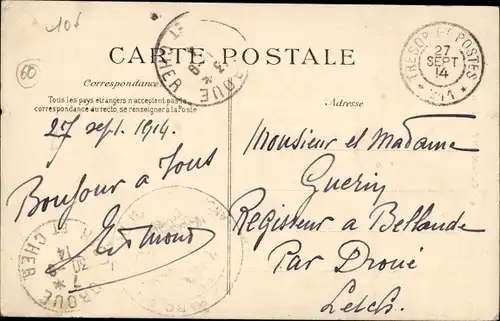 10f
60
CARTE POSTALE
Correspondance
Tous les pays étrangers n'acceptent pas la
correspondance au recto, se renseigner à la Poste
Adresse
TRESOR ET POSTES
27
SEPT
14
27 sept. 1914.
Bonjour a Tous
Edmond
Monsieur et Madame
Guerin
Regisseur a Bellande
Par Droué
DROUE
ET CHER
DROUE
CHER
7 30
14